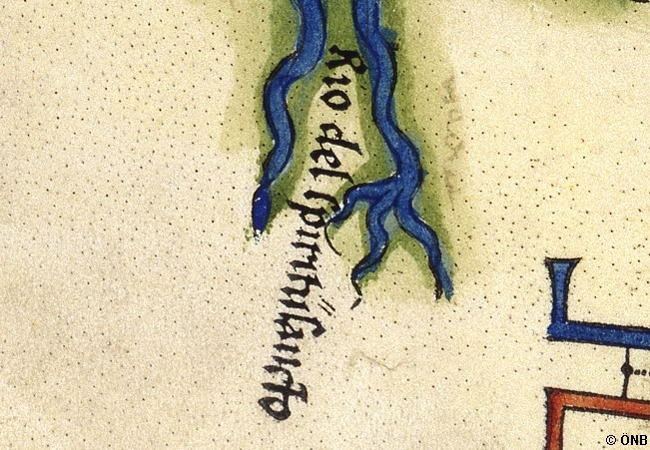 Rio del ſpirituſancto
© ÖNB